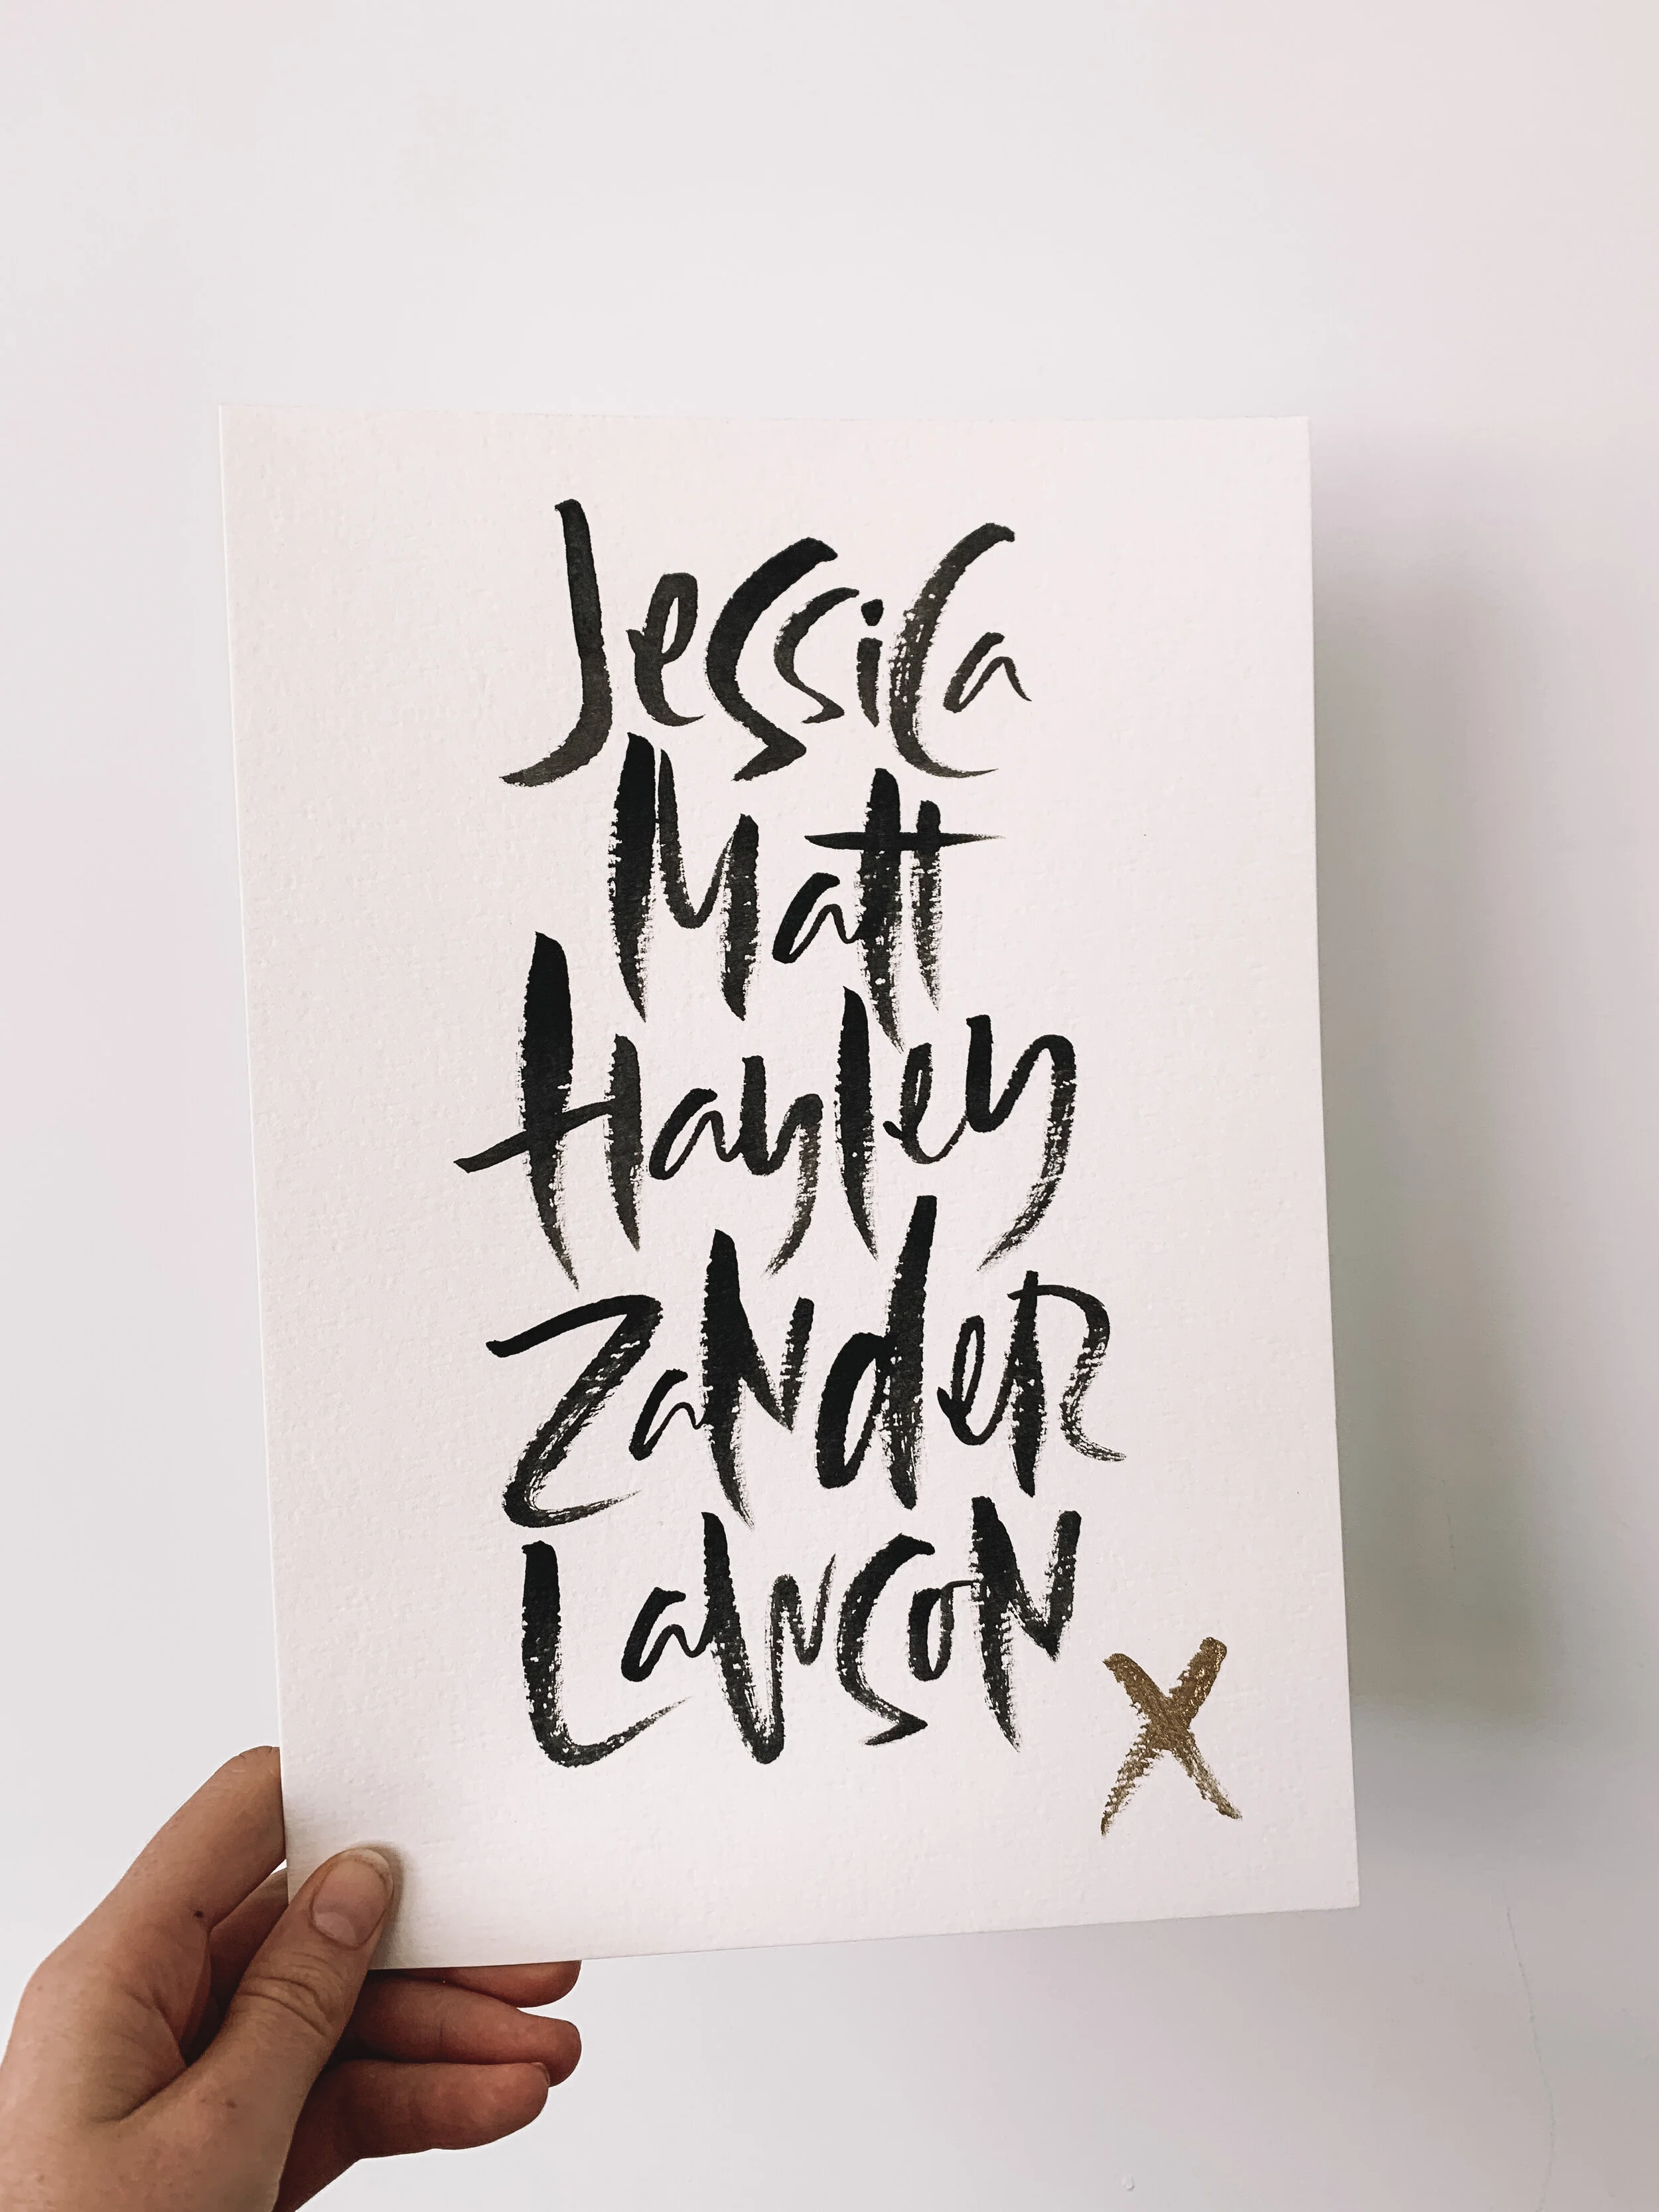 Jessica
Matt
Hayley
ZaNdeR
LawsoN
X